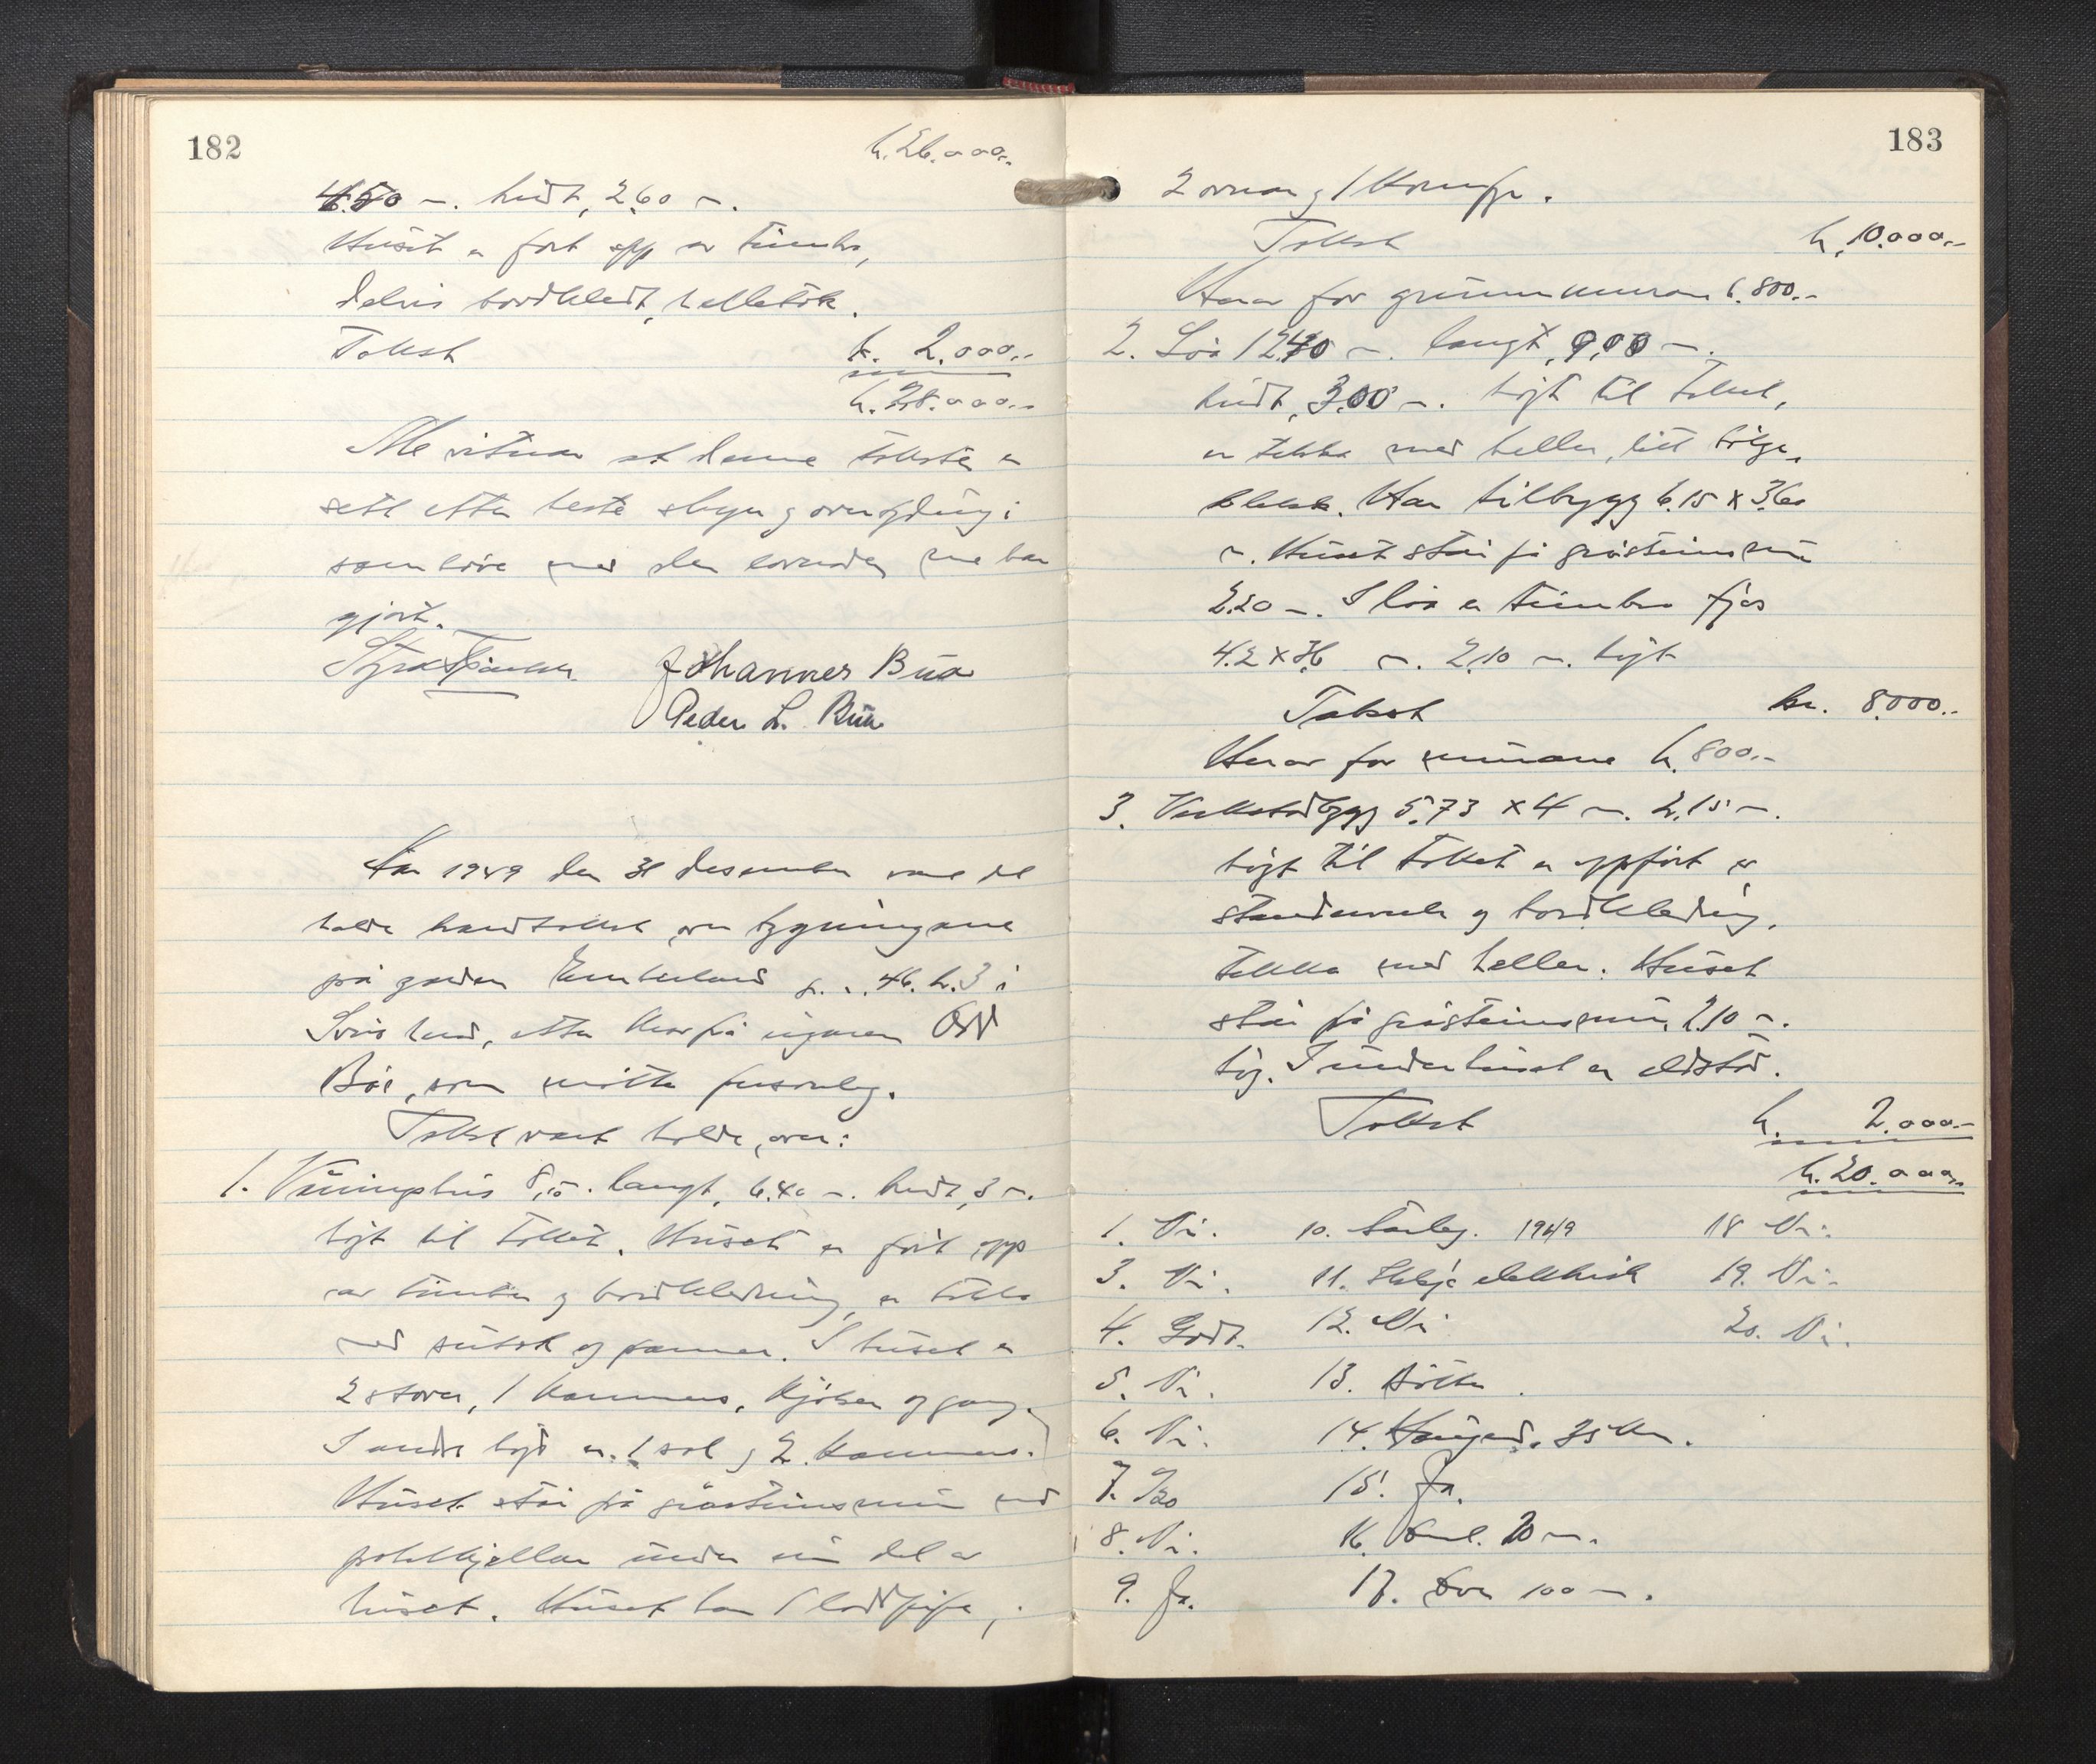 182
kr. 26.000,-
4.50 m. breidt, 2,60 m.
Huset er ført opp av timber,
delvis bordkledt, helletak.
Takst kr. 2.000,-
kr. 28.000,-
Me vitnar at denne taksten er
sett etter beste skyn og overtyding i
samhøve med den lovnaden me har
gjort.
Johannes Bua
Peder L. Bua
År 1949 den 31 desember vart det
halde brandtakst over bygningane
på garden g. nr. 46. br. 3 i
herad, etter krav frå eigaren
Bøe, som møtte personleg.
Takst vart halde over:
1. Våningshus 8,10 m. langt, 6.40 m. breidt, 3 m.
høgt til taket. Huset er ført opp
av timber og bordkledning, er tekka
med sutak og panner. I huset er
2 stover, 1 kammers, kjøken og gang.
I andre høgd er 1 sal og 2 kammers.
Huset står på gråsteinsmur med
potetkjellar under ein del av
huset. Huset har 1 loddpipe,
183
2 omnar og 1 komfyr.
Takst kr. 10.000,-
Herav for grunnmuren kr. 800,-
2. Løa 12.40 m. langt, 9,00 m.
breidt, 3.00 m. høgt til taket,
er tekka med heller, litt bølgje-
blekk. Har tilbygg 6.15 x 3.60
m. Huset står på gråsteinsmur
2.20 m. I løa er timbra fjøs
4.2 x 3.6 m. 2.10 m. høgt
Takst kr. 8.000,-
Herav for murane kr. 800,-
3. Verkstadbygg 5.73 x 4 m. 2.15 m.
høgt til taket er oppført av
standerverk og bordkledning,
tekka med heller. Huset
står på gråsteinsmur, 2.10 m.
høg. I underhuset er eldstad.
Takst kr. 2.000,-
kr. 20.000,-
1. Nei. 10. Særleg. 1949 18 Nei.
3. Nei. 11. elektrisk 19. Nei.
4. Godt. 12. Nei 20. Nei.
5. Nei. 13. Bøtter.
6. Nei. 14. Haugesund. 35 km.
7. 1/20 15. Ja.
8. Nei. 16. 20 m.
9. Ja. 17. Over 100 m.